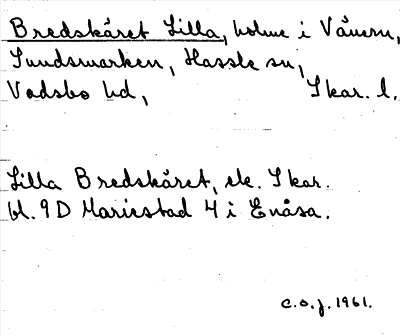 Bredskäret Lilla, holme i Vänern,
Sundsmarken, Hassle sn,
Vadsbo hd, Skar. l.
Lilla Bredskäret, ek. Skar.
bl. 9D Mariestad 4 i Enåsa.
C.O.J. 1961.